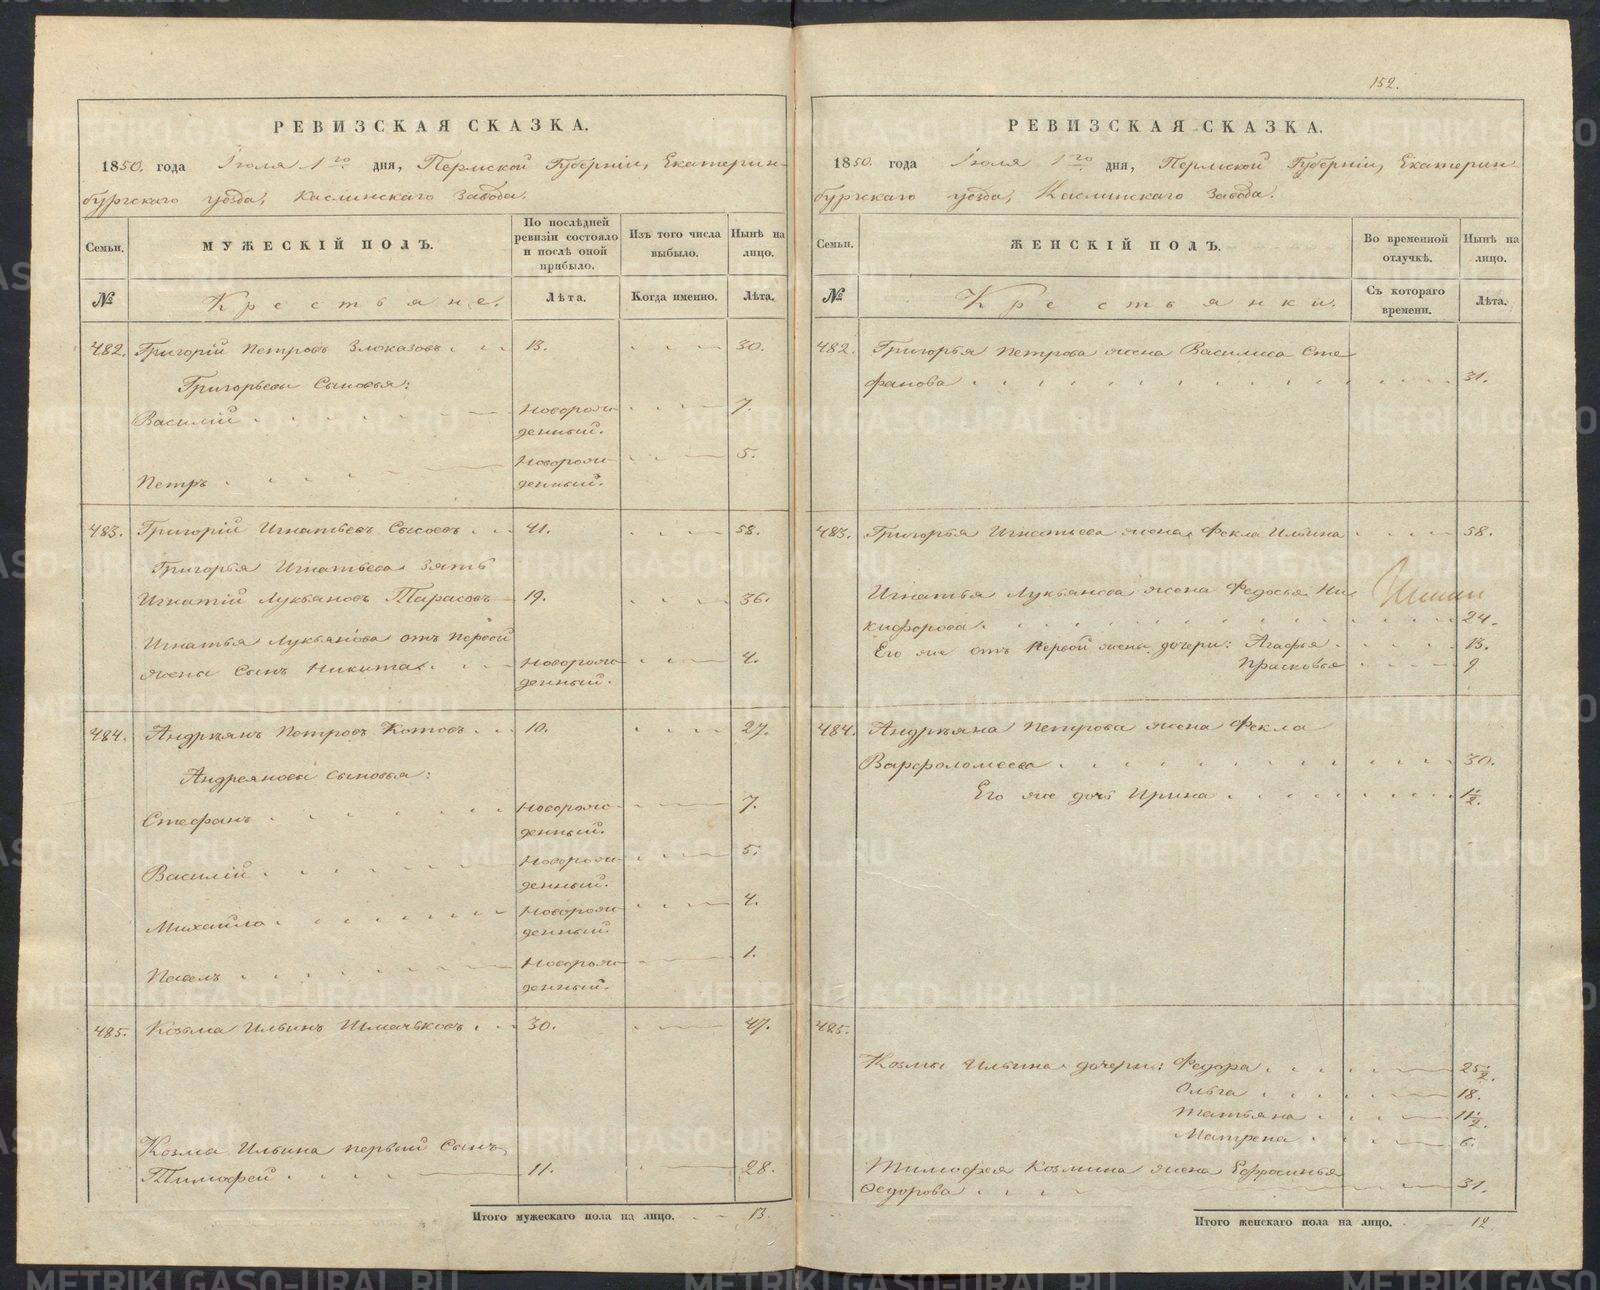 152.
РЕВИЗСКАЯ СКАЗКА.
1850. года Іюля 1го дня, Пермской Губерніи, Екатерин-
бургскаго уѣзда, Каслинскаго Завода.
Семьи.
МУЖЕСКІЙ ПОЛЪ.
По послѣдней
ревизіи состояло
и послѣ оной
прибыло.
Изъ того числа
выбыло.
Нынѣ на
лицо.
№
Крестьяне.
Лѣта.
Когда именно.
Лѣта.
482. Григорій Петровъ Злоказовъ 13. 30.
Григорьевы Сыновья:
Василій Новорож- 7.
денный.
Новорож- 5.
Петръ денный.
483. Григорій Игнатьевъ Сысоевъ 41. 58.
Григорья Игнатьева зять
Игнатій Лукьяновъ Тарасовъ 19. 36.
Игнатья Лукьянова отъ первой
жены Сынъ Никита Новорож- 4.
денный.
484. Андреянъ Петровъ Котовъ 10. 27.
Андреяновы сыновья:
Стефанъ Новорож- 7.
денный.
Василій Новорож- 5.
денный.
Михайло Новорож- 4.
денный.
Павелъ Новорож- 1.
денный.
485. Козьма Ильинъ Шмачьковъ 30. 47.
Козма Ильина первый Сынъ
Тимофей 11. 28.
Итого мужескаго пола на лицо. 13.
РЕВИЗСКАЯ СКАЗКА.
1850. года Іюля 1го дня, Пермской Губерніи, Екатерин-
бургскаго уѣзда, Каслинскаго Завода.
Семьи.
ЖЕНСКІЙ ПОЛЪ.
Во временной
отлучкѣ.
Нынѣ на
лицо.
№
Крестьянки.
Съ котораго
времени.
Лѣта.
482. Григорья Петрова жена Василиса Сте
фанова 31.
483. Григорья Игнатьева жена Фекла Ильина 58.
Игнатья Лукьянова жена Федосья Ни
кифорова 24.
Его же отъ первой жены дочери: Агафья 13.
Прасковья 9
484. Андреяна Петрова жена Фекла
Варфоломеева 30.
Его же дочь Ирина 1½.
485.
Козмы Ильина дочери: Федора 25½.
Ольга 18.
Татьяна 11½.
Матрена 6.
Тимофея Козмина жена Ефросинья
Федорова 31.
Итого женскаго пола на лицо. 12.
METRIKI.GASO-URAL.RU